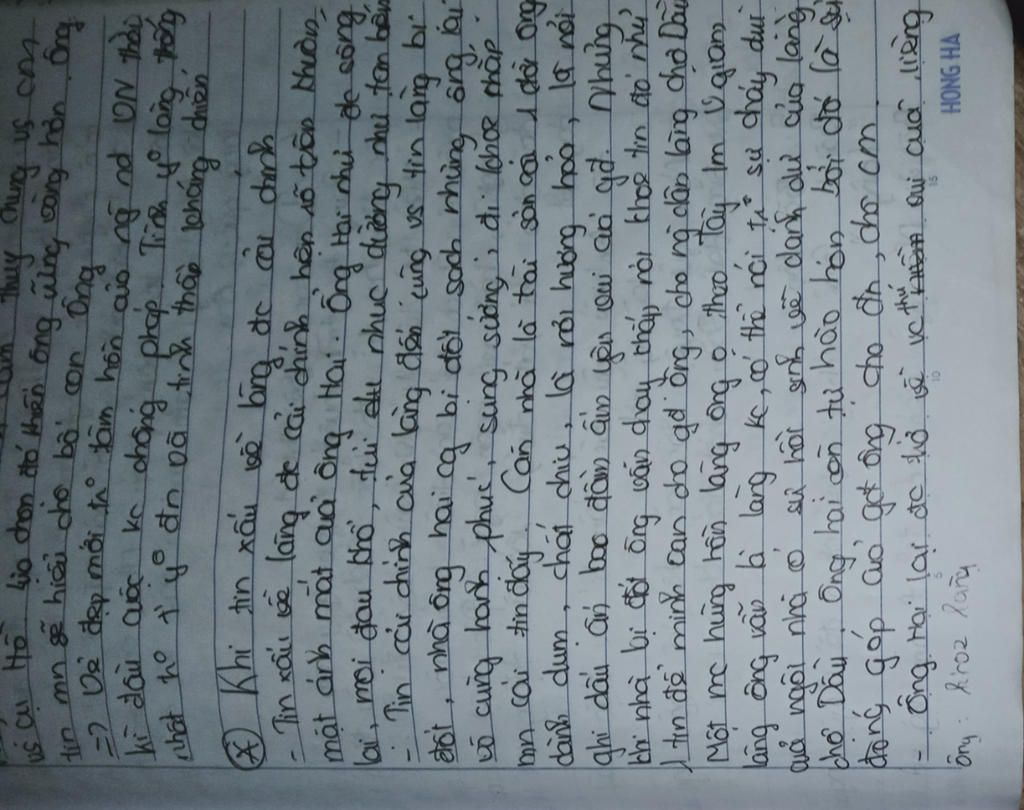 vs cụ Hồ lựa chọn đó khiến ông vững vàng hơn. ông
tin mn sẽ hiểu cho bố con ông
=> Vẻ đẹp mới trº tâm hồn của ng nd VN thời
kì đầu cuộc kc chống pháp. Tình yº làng thống
nhất hº tº yº đn và tinh thần kháng chiến.
(*) Khi tin xấu về làng đc cải chính
- Tin xấu về làng đc cải chính hiện rõ trên khuôn
mặt ánh mắt của ông Hai. Ông Hai như đc sống
lại, mọi đau khổ, tủi nhục dường như tan biến
- Tin cải chính của làng đến cùng vs tin làng bị
đốt, nhà ông hai cg bị đốt sạch nhưng ông lại
vô cùng hạnh phúc, sung sướng, đi khoe khắp
mn cái tin đấy. Căn nhà là tài sản của 1 đời ông
dành dụm, chắt chiu, là nơi hương hỏa, là nơi
ghi dấu ấn bao đầm ấm yên vui của gđ. Nhưng
khi nhà bị đốt ông vẫn chạy thấy nơi khoe tin đó như
1 tin để minh oan cho gđ ông, cho ng dân làng chợ Dầu
Một mc hùng hồn làng ông o theo Tây lm Vgian
làng ông vẫn là làng kc, có thể nói trº sự cháy dụi
của ngôi nhà có sự hồi sinh về danh dự của làng
chợ Dầu, ông hai còn tự hào hơn bởi đó là sự
đóng góp của gđ ông cho đn, cho cm.
- Ông Hai lại đc trở về vc thú vui quá riêng
ông: khoe làng
HONG HA
5
10
15